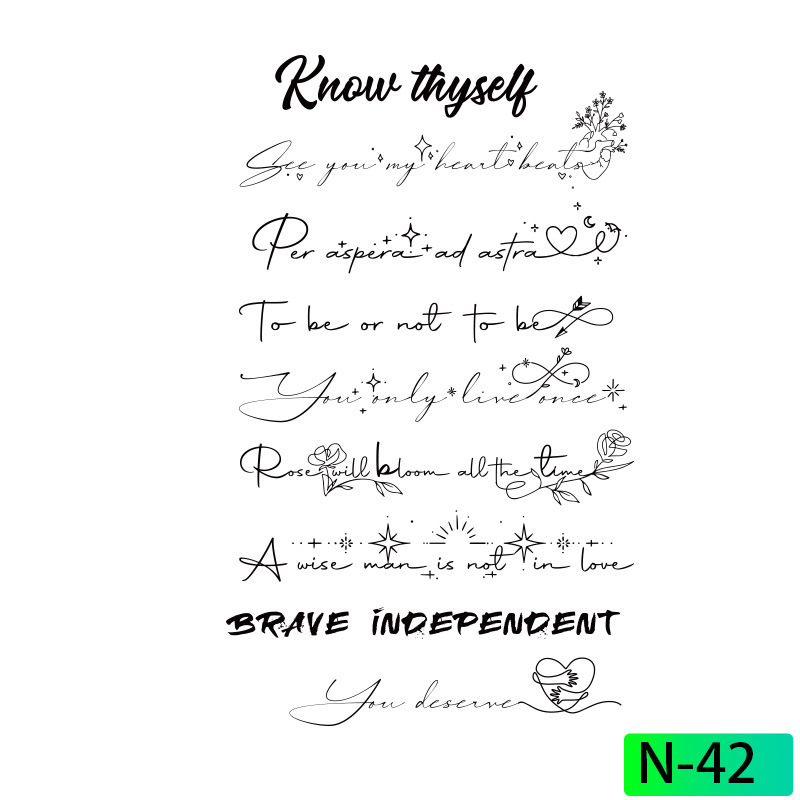 Know thyself
See you my heart beats
Per aspera ad astra
To be or not to be
You only live once
Rose will bloom all the time
A wise man is not in love
BRAVE INDEPENDENT
You deserve
N-42